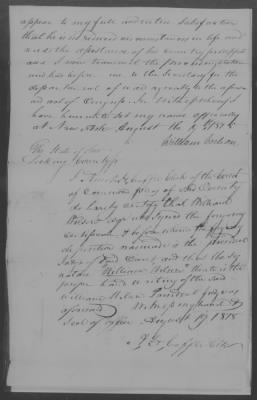 appear to my full and entire satisfaction
that he is in reduced circumstances in life and
needs the assistance of his country for support
and I now transmit the proceedings taken
and had before me to the Secretary for the
department of war agreeably to the aforesaid
act of Congress. In testimony whereof I
have hereunto set my name officially
at New Ark August the 19th 1818
William Wilson
The State of
Licking County ss
I Clerk of the Court
of Common Pleas of said County
do hereby certify that William
Wilson Esqr who signed the foregoing
certificate & before whom the
deposition was made is the president
Judge of said Court and that the sig
nature William Wilson thereto is the
proper hand writing of the said
William Wilson President Judge as
aforesaid Witness my hand &
seal of office August 19 1818